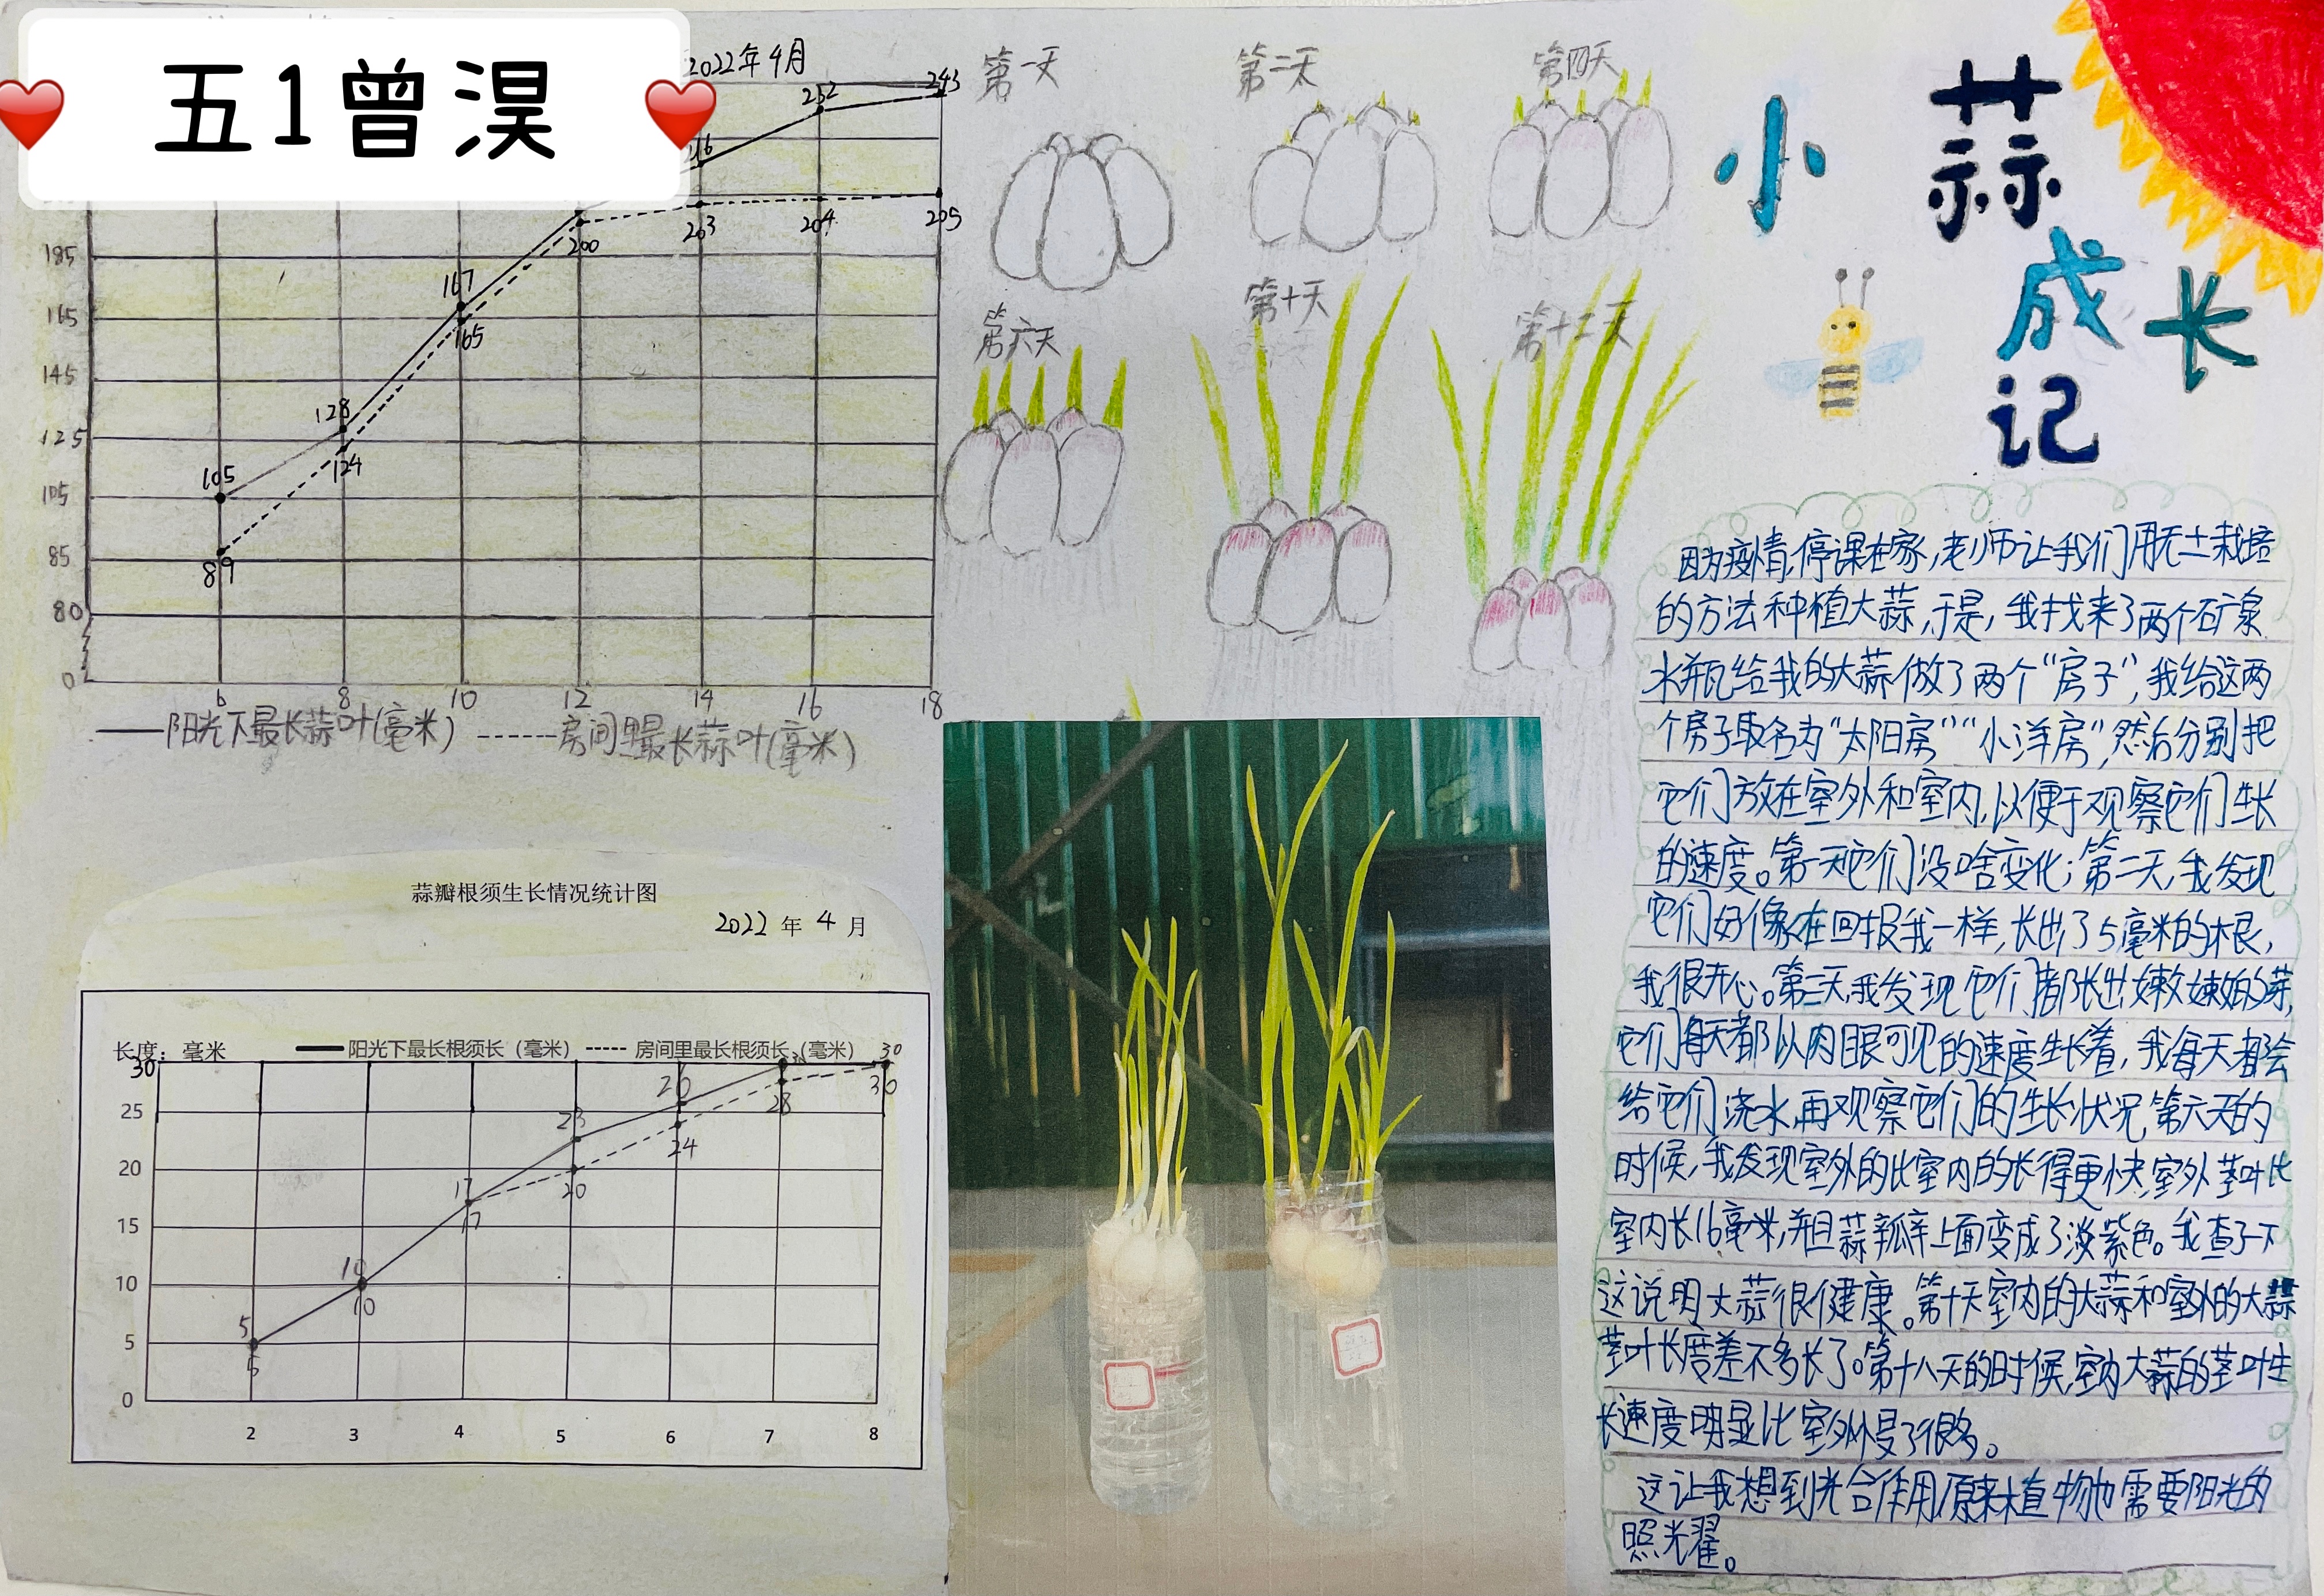 五1曾淏
2022年4月
216
232
243
200
203
204
205
185
167
165
165
145
128
125
124
105
105
85
89
80
0
6 8 10 12 14 16 18
阳光下最长蒜叶(毫米)
房间里最长蒜叶(毫米)
蒜瓣根须生长情况统计图
2022年4月
长度：毫米
阳光下最长根须长（毫米）
房间里最长根须长（毫米）
30
30
30
28
25
23
24
20
20
17
17
15
10
10
10
5
5
5
0
2 3 4 5 6 7 8
第一天
第二天
第四天
第六天
第十天
第十二天
小蒜成长记
因为疫情,停课在家,老师让我们用无土栽培
的方法种植大蒜,于是,我找来了两个矿泉
水瓶给我的大蒜做了两个“房子”,我给这两
个房子取名为“太阳房”“小洋房”,然后分别把
它们放在室外和室内,以便于观察它们生长
的速度。第一天它们没啥变化;第二天,我发现
它们好像在回报我一样,长出了5毫米的根,
我很开心。第三天,我发现它们都长出嫩嫩的芽,
它们每天都以肉眼可见的速度生长着,我每天都会
给它们浇水,再观察它们的生长状况,第六天的
时候,我发现室外的比室内的长得更快,室外茎叶比
室内长16毫米,并且蒜瓣上面变成了淡紫色。我查了下
这说明大蒜很健康。第十天室内的大蒜和室外的大蒜
茎叶长度差不多长了。第十八天的时候,室内大蒜的茎叶生
长速度明显比室外慢了很多。
这让我想到光合作用,原来植物也需要阳光的
照光翟。